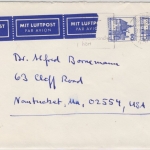 MIT LUFTPOST
PAR AVION
MIT LUFTPOST
PAR AVION
MIT LUFTPOST
PAR AVION
Dr. Alfred Bornemann
63 Cliff Road
Nantucket, Ma, 02554, USA